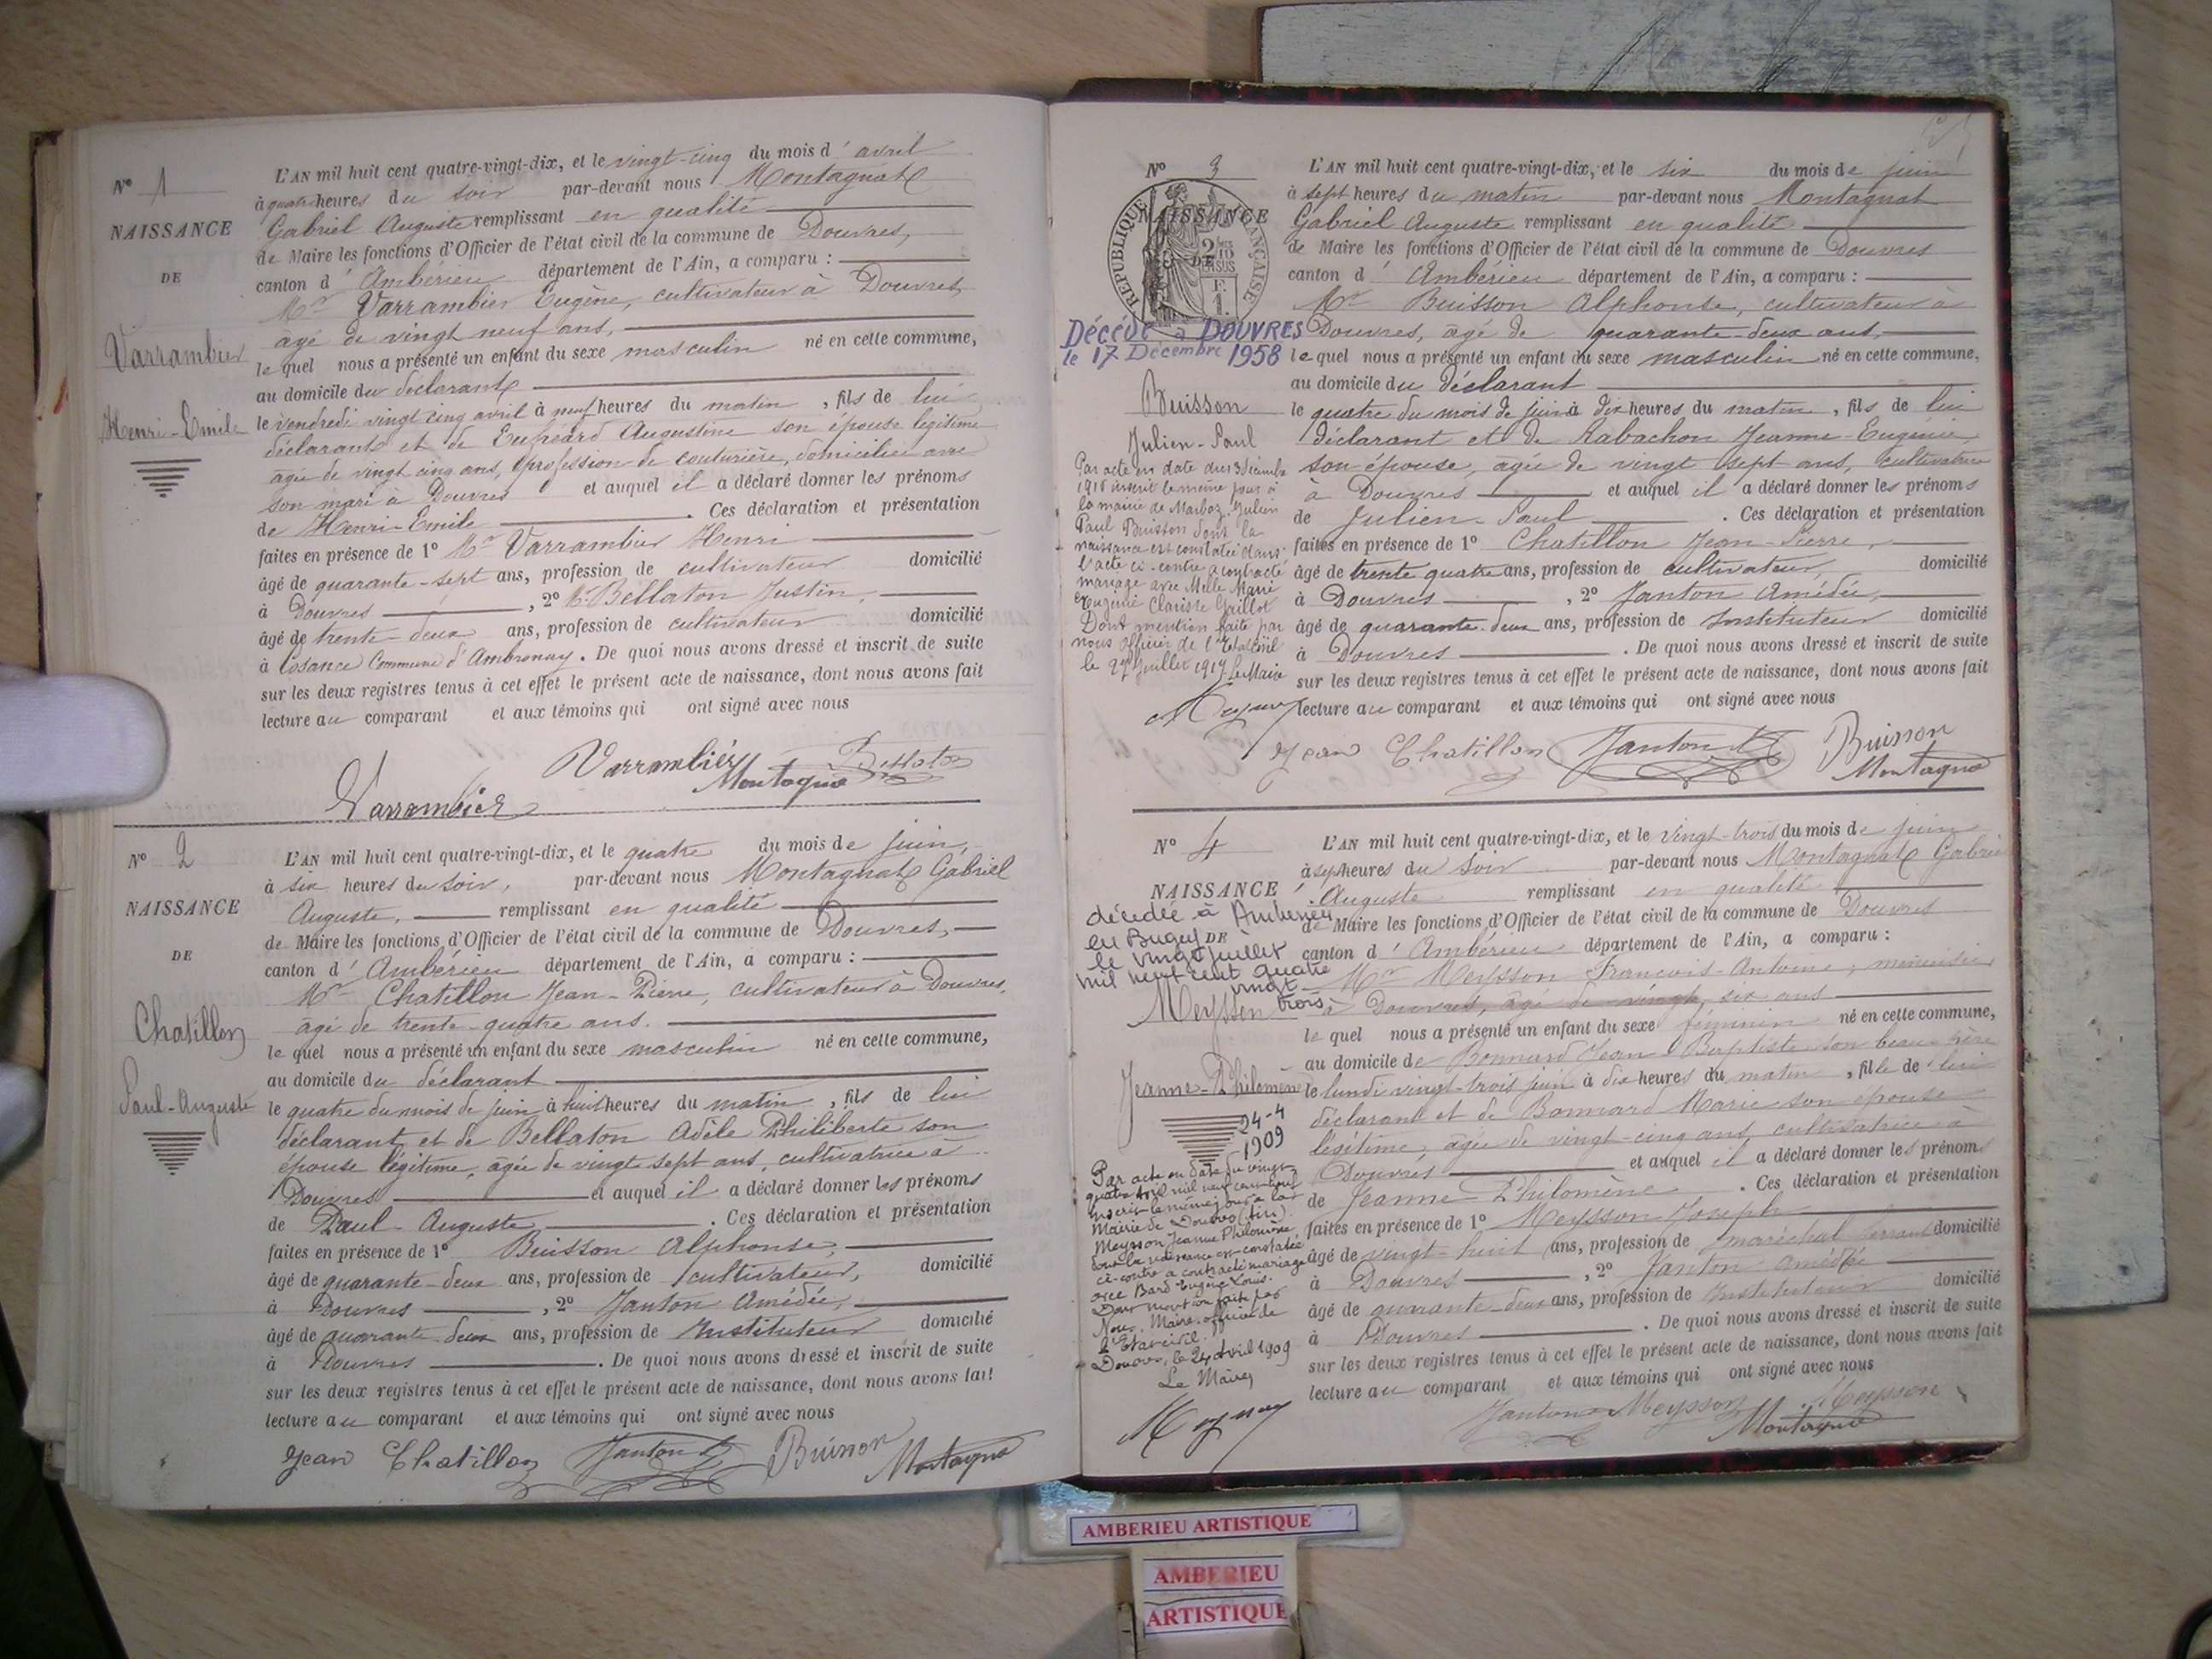 N° 1
NAISSANCE
DE
Varrambier
Henri-Emile
L'AN mil huit cent quatre-vingt-dix, et le vingt-cinq du mois d'avril
à quatre heures du soir par-devant nous Montagnat
Gabriel Auguste remplissant en qualité
de Maire les fonctions d'Officier de l'état civil de la commune de Douvres,
canton d'Ambérieu département de l'Ain, a comparu :
Mr Varrambier Eugène, cultivateur à Douvres
âgé de vingt neuf ans,
lequel nous a présenté un enfant du sexe masculin né en cette commune,
au domicile du déclarant
le vendredi vingt cinq avril à neuf heures du matin, fils de lui
déclarant et de Augustine son épouse légitime
âgée de vingt cinq ans, profession de couturière, domiciliée avec
son mari à Douvres et auquel il a déclaré donner les prénoms
de Henri-Emile . Ces déclaration et présentation
faites en présence de 1° Mr Varrambier Henri
âgé de quarante-sept ans, profession de cultivateur domicilié
à Douvres , 2° Mr Bellaton Justin,
âgé de trente-deux ans, profession de cultivateur domicilié
à Cosance Commune d'Ambronay. De quoi nous avons dressé et inscrit de suite
sur les deux registres tenus à cet effet le présent acte de naissance, dont nous avons fait
lecture au comparant et aux témoins qui ont signé avec nous
Varrambier Bellaton
Montagnat
Varrambier
N° 2
NAISSANCE
DE
Chatillon
Paul-Auguste
L'AN mil huit cent quatre-vingt-dix, et le quatre du mois de juin,
à six heures du soir, par-devant nous Montagnat Gabriel
Auguste, remplissant en qualité
de Maire les fonctions d'Officier de l'état civil de la commune de Douvres,
canton d'Ambérieu département de l'Ain, a comparu :
Mr Chatillon Jean-Pierre, cultivateur à Douvres,
âgé de trente-quatre ans.
lequel nous a présenté un enfant du sexe masculin né en cette commune,
au domicile du déclarant
le quatre du mois de juin à huit heures du matin, fils de lui
déclarant et de Bellaton Adèle Philiberte son
épouse légitime, âgée de vingt sept ans, cultivatrice à
Douvres et auquel il a déclaré donner les prénoms
de Paul-Auguste, . Ces déclaration et présentation
faites en présence de 1° Buisson Alphonse,
âgé de quarante-deux ans, profession de cultivateur, domicilié
à Douvres , 2° Janton Amédée,
âgé de quarante deux ans, profession de Instituteur domicilié
à Douvres . De quoi nous avons dressé et inscrit de suite
sur les deux registres tenus à cet effet le présent acte de naissance, dont nous avons fait
lecture au comparant et aux témoins qui ont signé avec nous
Jean Chatillon Janton Buisson Montagnat
N° 3
NAISSANCE
DE
REPUBLIQUE FRANÇAISE
2/10 EN SUS
F. 1
Décédé à DOUVRES
le 17 Décembre 1958
Buisson
Julien-Paul
Par acte en date du 13 Décembre
1915 inscrit le même jour à
la mairie de Marboz, Julien
Paul Buisson dont la
naissance est constatée dans
l'acte ci-contre a contracté
mariage avec Melle Marie
Eugénie Clarisse Grillot
Dont mention faite par
nous officier de l'Etat civil
le 27 Juillet 1917 Le Maire
L'AN mil huit cent quatre-vingt-dix, et le six du mois de juin
à sept heures du matin par-devant nous Montagnat
Gabriel Auguste remplissant en qualité
de Maire les fonctions d'Officier de l'état civil de la commune de Douvres
canton d'Ambérieu département de l'Ain, a comparu :
Mr Buisson Alphonse, cultivateur à
Douvres, âgé de quarante deux ans,
lequel nous a présenté un enfant du sexe masculin né en cette commune,
au domicile du déclarant
le quatre du mois de juin à dix heures du matin, fils de lui
déclarant et de Rabachon Jeanne-Eugénie,
son épouse, âgée de vingt sept ans, cultivatrice
à Douvres et auquel il a déclaré donner les prénoms
de Julien-Paul . Ces déclaration et présentation
faites en présence de 1° Chatillon Jean-Pierre,
âgé de trente quatre ans, profession de cultivateur, domicilié
à Douvres , 2° Janton Amédée,
âgé de quarante-deux ans, profession de Instituteur domicilié
à Douvres . De quoi nous avons dressé et inscrit de suite
sur les deux registres tenus à cet effet le présent acte de naissance, dont nous avons fait
lecture au comparant et aux témoins qui ont signé avec nous
Jean Chatillon Janton Buisson
Montagnat
N° 4
NAISSANCE
DE
décédée à Ambérieu
en Bugey
le vingt juillet
mil neuf cent quatre
vingt
trois
Meysson
Jeanne-Philomène
24-4
1909
Par acte en date du vingt
quatre avril mil neuf cent neuf
inscrit le même jour à la
Mairie de Douvres (Ain).
Meysson Jeanne Philomène
dont la naissance est constatée
ci-contre a contracté mariage
avec Bard Eugène Louis.
Dont mention faite par
Nous, Maire officier de
l'Etat civil.
Douvres, le 24 avril 1909
Le Maire
L'AN mil huit cent quatre-vingt-dix, et le vingt-trois du mois de juin
à sept heures du soir par-devant nous Montagnat Gabriel
Auguste remplissant en qualité
de Maire les fonctions d'Officier de l'état civil de la commune de Douvres
canton d'Ambérieu département de l'Ain, a comparu :
Mr Meysson François-Antoine, menuisier
à Douvres, âgé de vingt six ans
lequel nous a présenté un enfant du sexe féminin né en cette commune,
au domicile de Bonnard Jean-Baptiste son beau-père
le lundi vingt-trois juin à dix heures du matin, fille de lui
déclarant et de Bonnard Marie son épouse
légitime, âgée de vingt-cinq ans, cultivatrice à
Douvres et auquel il a déclaré donner les prénoms
de Jeanne-Philomène . Ces déclaration et présentation
faites en présence de 1° Meysson Joseph
âgé de vingt-huit ans, profession de maréchal ferrant domicilié
à Douvres , 2° Janton Amédée
âgé de quarante-deux ans, profession de Instituteur domicilié
à Douvres . De quoi nous avons dressé et inscrit de suite
sur les deux registres tenus à cet effet le présent acte de naissance, dont nous avons fait
lecture au comparant et aux témoins qui ont signé avec nous
Janton Meysson Meysson
Montagnat
AMBERIEU ARTISTIQUE
AMBERIEU
ARTISTIQUE